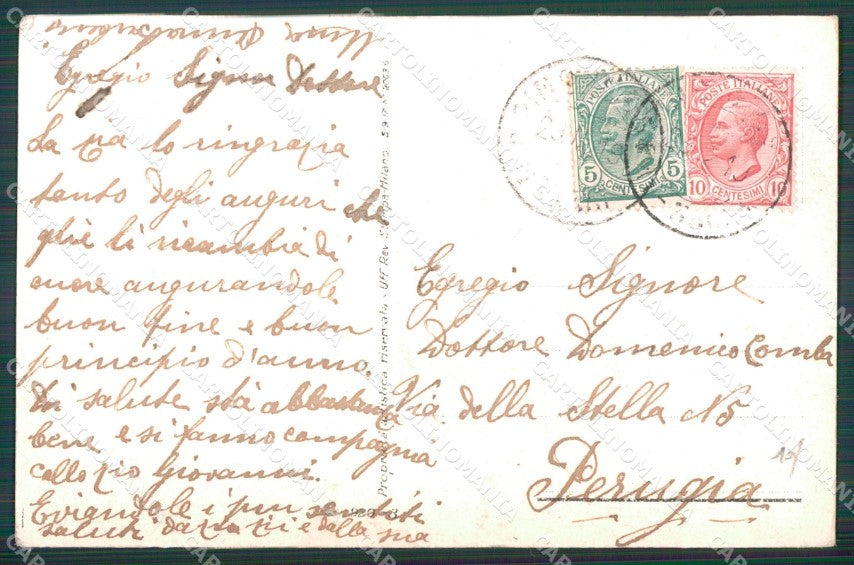 Egregio Signor Dottore
La zia lo ringrazia
tanto degli auguri che
glie li ricambia di
cuore augurandole
buon fine e buon
principio d'anno.
Di salute stà abbastanza
bene e si fanno compagna
collo zio Giovanni.
Eviandole i più sentiti
saluti da zia zii e dalla sua
Proprietà artistica riservata - Uff. Rev. Stampa-Milano
POSTE ITALIANE
5 5
CENTESIMI
POSTE ITALIANE
10 10
CENTESIMI
Egregio Signore
Dottore Domenico Comba
Via della Stella N5
Perugia
CARTOLINOMANIA